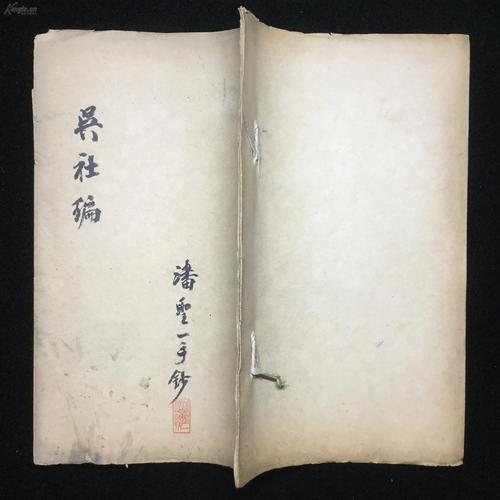 吳社编
潘聖一手鈔